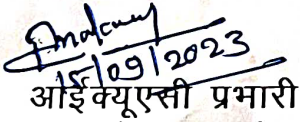 15/09/2023
आई क्यूएसी प्रभारी